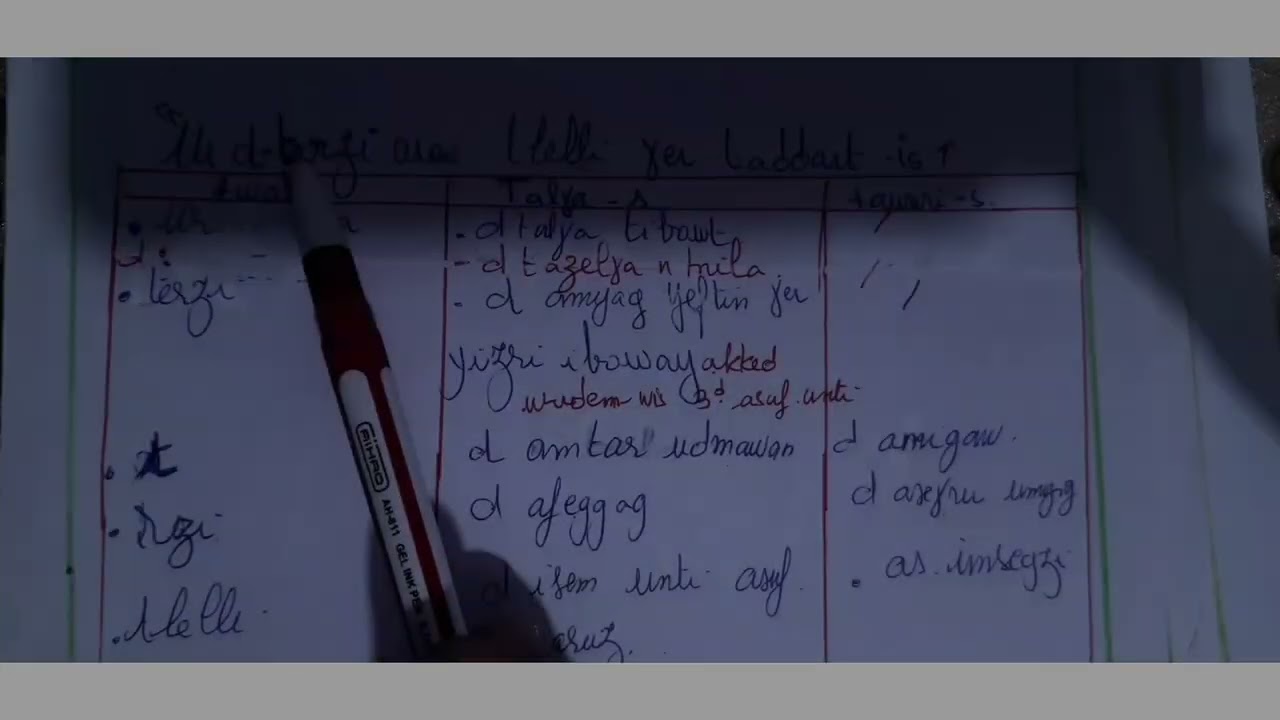 d-terzi ara tlelli ɣer taddart -is"
Talɣa - s tawuri - s.
- d talɣa tibawt
- d tazelɣa n tnila.
• terzi - d amyag yeftin ɣer
yizri ibaway akked
wudem wis 3d asuf. unti
• t d amtar udmawan d amigaw.
• Rzi d afeggag d aseɣru umyig
• tlelli d isem unti asuf. • as. imsegzi
aruz.
AIHAO
AH-811 GEL INK PEN